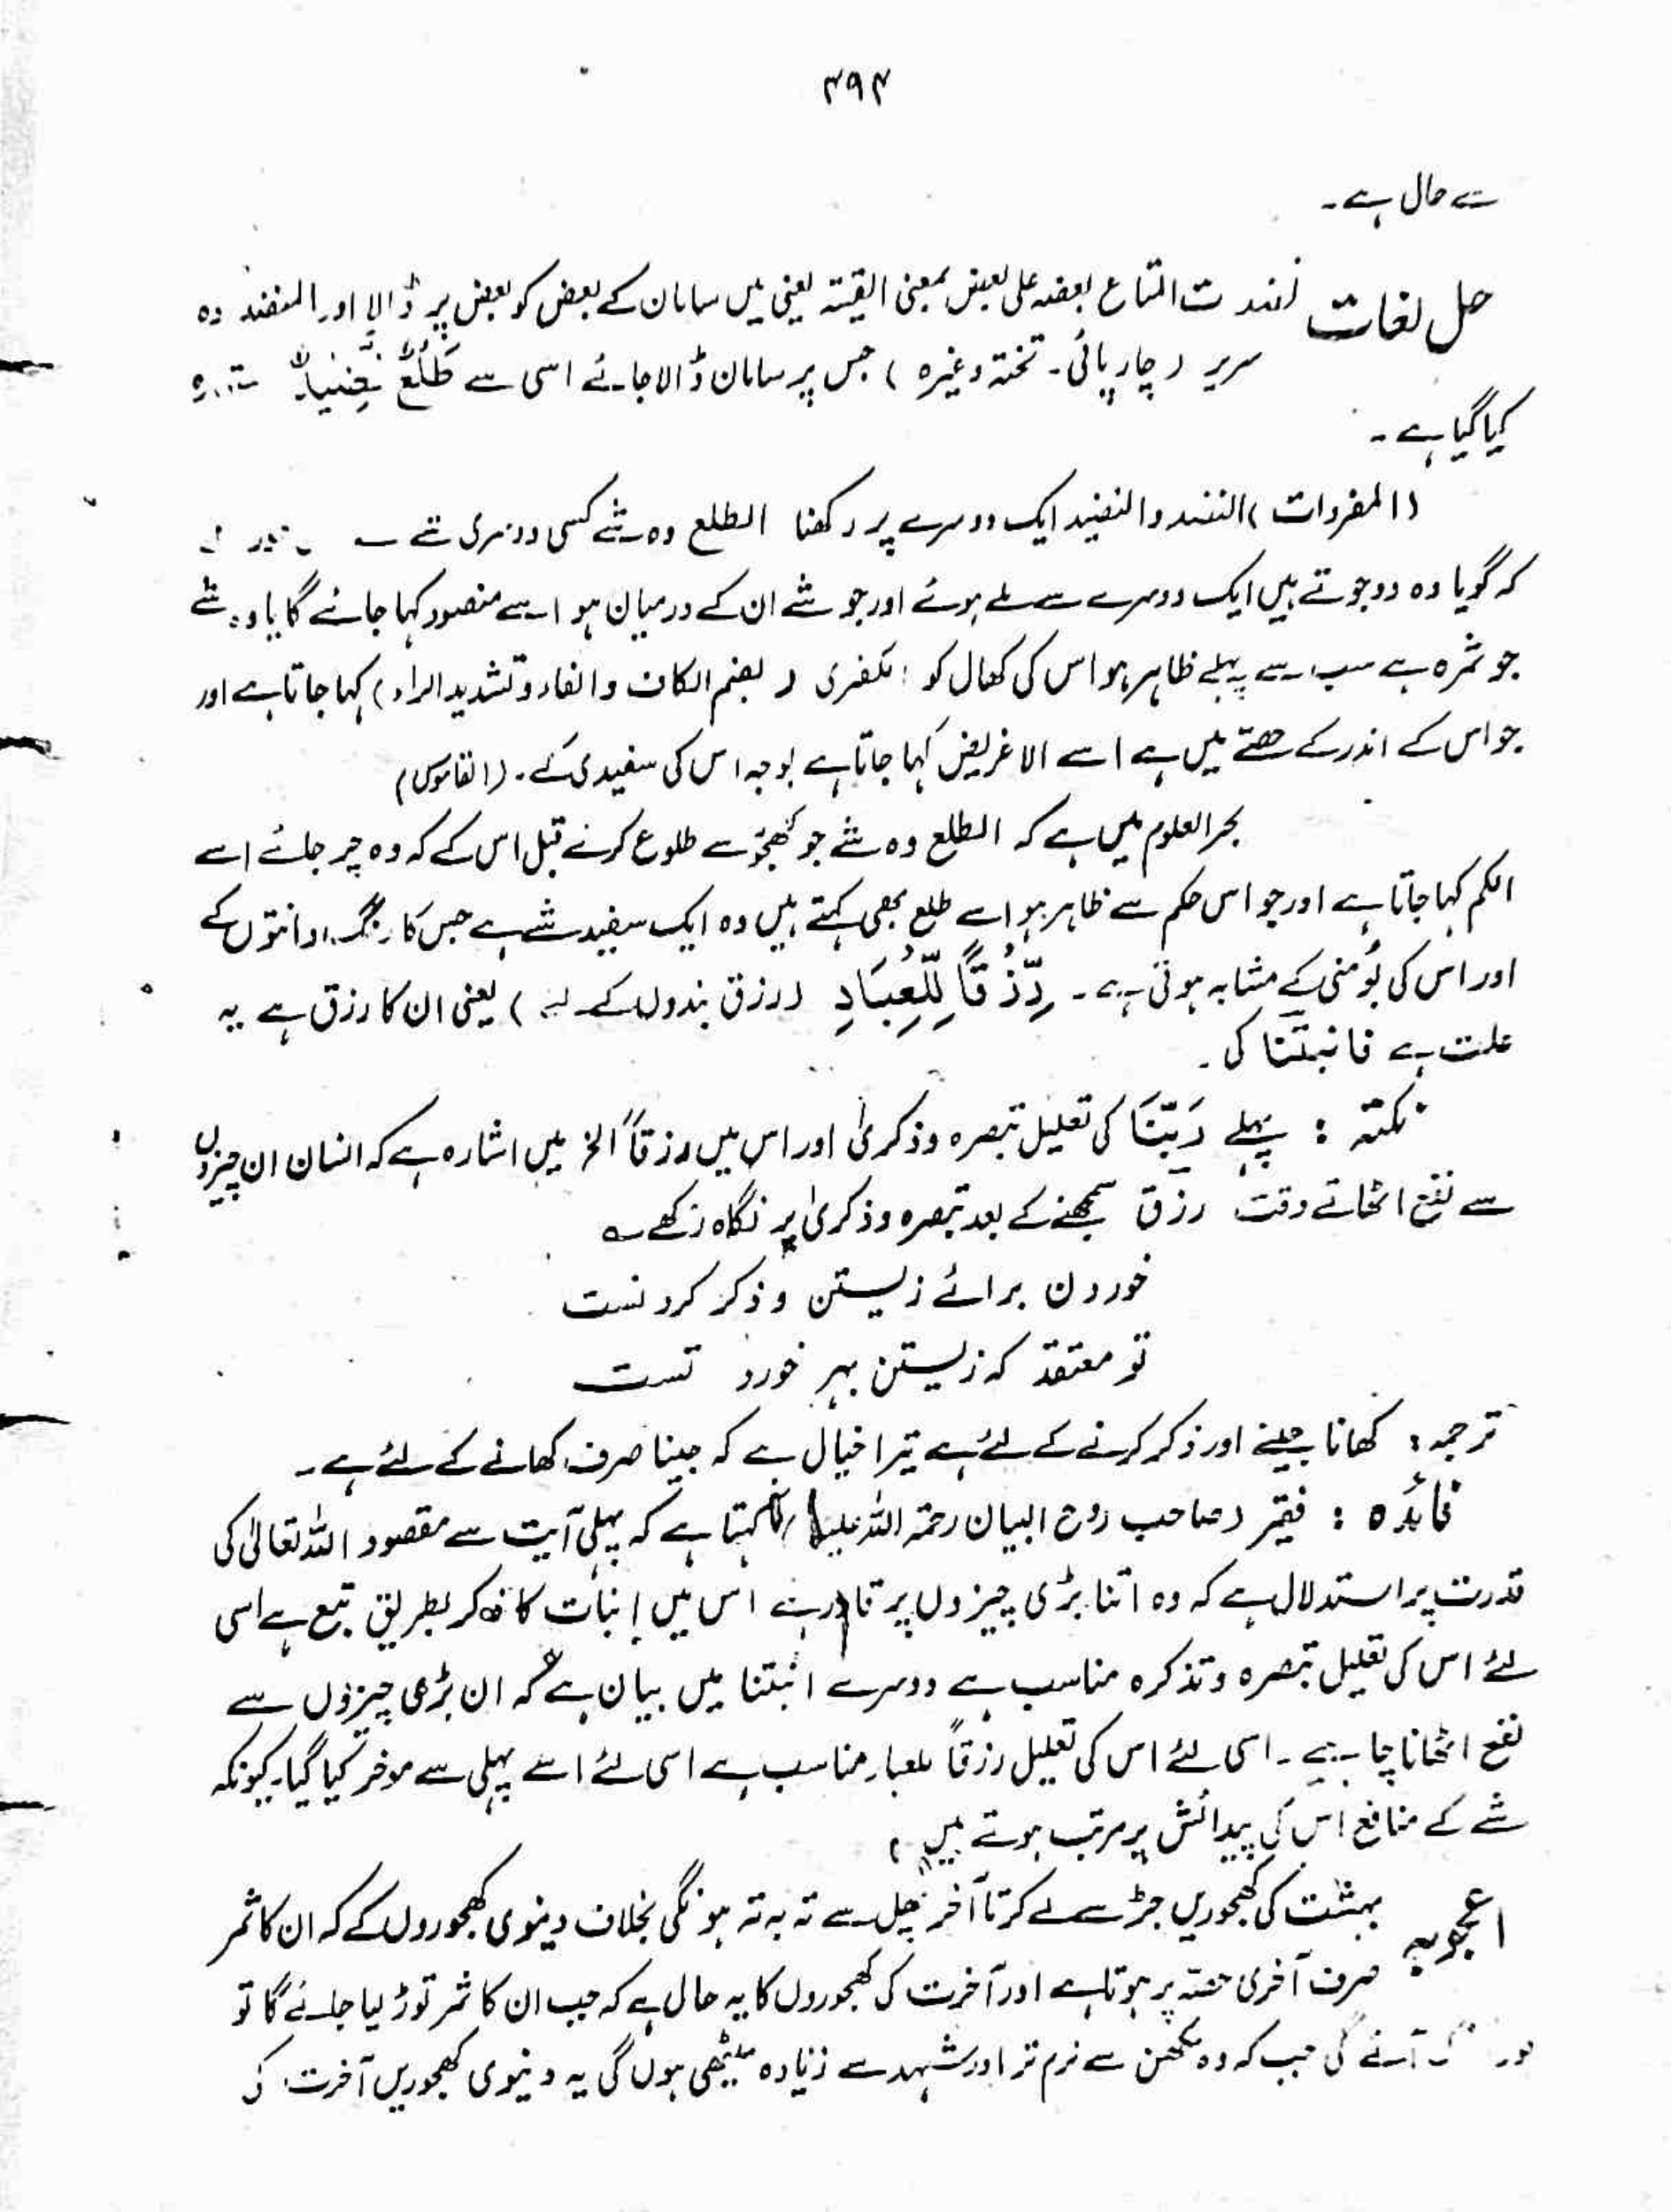 ۴۹۴
سے حال ہے۔
حل لغات نضدت المتاع بعضہ علی بعض بمعنی القیتہ یعنی میں سامان کے بعض کو بعض پر ڈالا اور المنضد وہ
سریر (چارپائی۔ تختہ وغیرہ) جس پر سامان ڈالا جائے اسی سے طَلْعٌ نَّضِیْدٌ
کیا گیا ہے۔
(المفردات) النضد والنضید ایک دوسرے پر رکھنا الطلع وہ شے کسی دوسری شے سے
کہ گویا وہ دو جوتے ہیں ایک دوسرے سے ملے ہوئے اور جو شے ان کے درمیان ہو اسے منضود کہا جائے گا یا وہ شے
جو ثمرہ ہے سب سے پہلے ظاہر ہو اس کی کھال کو الکفری (بضم الکاف والفاء وتشدید الراء) کہا جاتا ہے اور
جو اس کے اندر کے حصے میں ہے اسے الاغریض کہا جاتا ہے بوجہ اس کی سفیدی کے۔ (القاموس)
بحر العلوم میں ہے کہ الطلع وہ شے جو کھجور سے طلوع کرنے قبل اس کے کہ وہ چر جائے اسے
الکم کہا جاتا ہے اور جو اس حکم سے ظاہر ہو اسے طلع بھی کہتے ہیں وہ ایک سفید شے ہے جس کا رنگ دانتوں کے
اور اس کی بُو منی کے مشابہ ہوتی ہے۔ رِّزْقًا لِّلْعِبَادِ (رزق بندوں کے لئے) یعنی ان کا رزق ہے یہ
علت ہے فانبتنا کی۔
نکتہ : پہلے رَبَّنَا کی تعلیل تبصرہ وذکریٰ اور اس میں رزقاً الخ میں اشارہ ہے کہ انسان ان چیزوں
سے نفع اٹھاتے وقت رزق سمجھنے کے بعد تبصرہ وذکریٰ پر نگاہ رکھے ؎
خوردن برائے زیستن و ذکر کردنست
تو معتقد کہ زیستن بہر خوردنست
ترجمہ : کھانا جینے اور ذکر کرنے کے لئے ہے تیرا خیال ہے کہ جینا صرف کھانے کے لئے ہے۔
فائدہ : فقیر (صاحب روح البیان رحمۃ اللہ علیہ) کہتا ہے کہ پہلی آیت سے مقصود اللہ تعالیٰ کی
قدرت پر استدلال ہے کہ وہ اتنا بڑی چیزوں پر قادر ہے اس میں انبات کا ذکر بطریق تبع ہے اسی
لئے اس کی تعلیل تبصرہ وتذکرہ مناسب ہے دوسرے انبتنا میں بیان ہے کہ ان بڑی چیزوں سے
نفع اٹھانا چاہیے۔ اسی لئے اس کی تعلیل رزقاً للعباد مناسب ہے اسی لئے اسے پہلی سے موخر کیا گیا۔ کیونکہ
شے کے منافع اس کی پیدائش پر مرتب ہوتے ہیں۔
اعجوبہ بہشت کی کھجوریں جڑ سے لے کر تا آخر پھل سے تہ بہ تہ ہونگی بخلاف دنیوی کھجوروں کے کہ ان کا ثمر
صرف آخری حصہ پر ہوتا ہے اور آخرت کی کھجوروں کا یہ حال ہے کہ جب ان کا ثمر توڑ لیا جائے گا تو
آئے گی جب کہ وہ مکھن سے نرم تر اور شہد سے زیادہ میٹھی ہوں گی یہ دنیوی کھجوریں آخرت کی